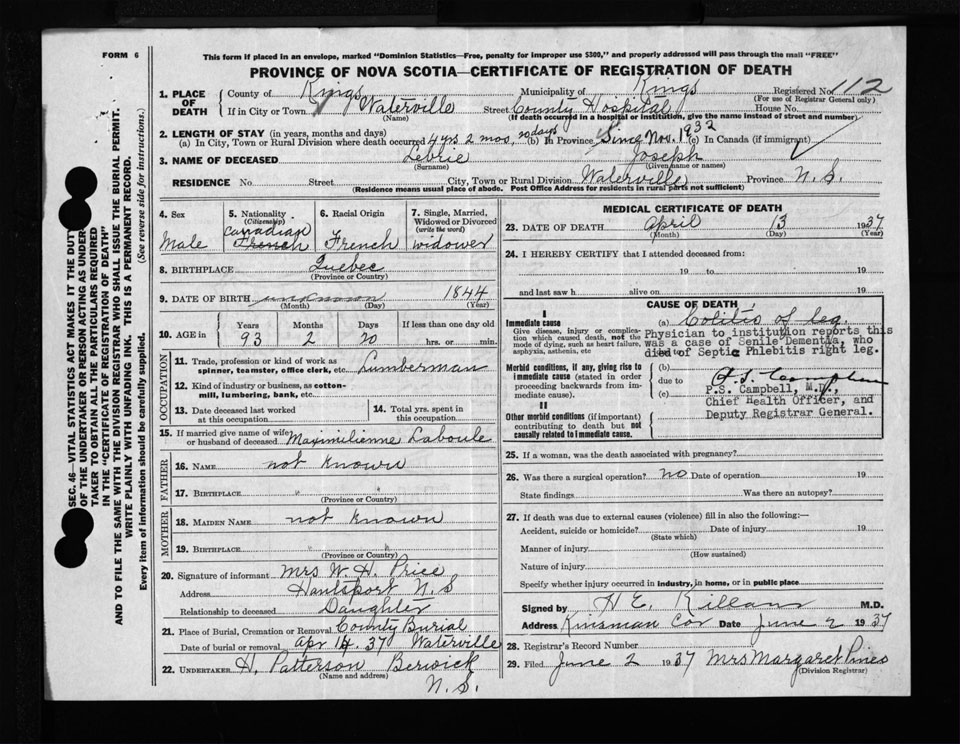 FORM 6
This form if placed in an envelope, marked "Dominion Statistics—Free, penalty for improper use $300," and properly addressed will pass through the mail "FREE"
PROVINCE OF NOVA SCOTIA—CERTIFICATE OF REGISTRATION OF DEATH
1. PLACE OF DEATH County of Kings Municipality of Kings Registered No. 112
(For use of Registrar General only)
If in City or Town Waterville Street County Hospital House No.
(Name) (If death occurred in a hospital or institution, give the name instead of street and number)
2. LENGTH OF STAY (in years, months and days)
(a) In City, Town or Rural Division where death occurred 4 yrs 2 mos, 20 days (b) In Province Since Nov. 1932 (c) In Canada (if immigrant)
3. NAME OF DECEASED Lebrie Joseph
(Surname) (Given name or names)
RESIDENCE No Street City, Town or Rural Division Waterville Province N. S.
(Residence means usual place of abode. Post Office Address for residents in rural parts not sufficient)
4. Sex Male
5. Nationality (Citizenship) Canadian French
6. Racial Origin French
7. Single, Married, Widowed or Divorced (write the word) widower
8. BIRTHPLACE Quebec
(Province or Country)
9. DATE OF BIRTH unknown 1844
(Month) (Day) (Year)
10. AGE in Years 93 Months 2 Days 20 If less than one day old hrs. or min.
OCCUPATION
11. Trade, profession or kind of work as spinner, teamster, office clerk, etc. Lumberman
12. Kind of industry or business, as cotton-mill, lumbering, bank, etc.
13. Date deceased last worked at this occupation
14. Total yrs. spent in this occupation
15. If married give name of wife or husband of deceased Maximilienne Laboule
FATHER
16. NAME not known
17. BIRTHPLACE " "
(Province or Country)
MOTHER
18. MAIDEN NAME not known
19. BIRTHPLACE " "
(Province or Country)
20. Signature of informant Mrs W. H. Price
Address Hantsport N. S
Relationship to deceased Daughter
21. Place of Burial, Cremation or Removal County Burial
Date of burial or removal Apr 14. 37 Waterville
22. UNDERTAKER H. Patterson Berwick
(Name and address)
N. S.
MEDICAL CERTIFICATE OF DEATH
23. DATE OF DEATH April 13 1937
(Month) (Day) (Year)
24. I HEREBY CERTIFY that I attended deceased from:
19 to 19
and last saw h alive on 19
CAUSE OF DEATH
I
Immediate cause
Give disease, injury or complication which caused death, not the mode of dying, such as heart failure, asphyxia, asthenia, etc
(a) Colitis of leg.
Physician to institution reports this
was a case of Senile Dementia, who
died of Septic Phlebitis right leg.
Morbid conditions, if any, giving rise to immediate cause (stated in order proceeding backwards from immediate cause).
(b)
due to
(c)
P.S. Campbell, M.D.,
Chief Health Officer, and
Deputy Registrar General.
II
Other morbid conditions (if important) contributing to death but not causally related to immediate cause.
25. If a woman, was the death associated with pregnancy?
26. Was there a surgical operation? no Date of operation 19
State findings Was there an autopsy?
27. If death was due to external causes (violence) fill in also the following:—
Accident, suicide or homicide? Date of injury 19
(State which)
Manner of injury
(How sustained)
Nature of injury
Specify whether injury occurred in industry, in home, or in public place
Signed by H E. Killam M.D.
Address Kinsman Cor Date June 2 1937
28. Registrar's Record Number
29. Filed June 2 1937 Mrs Margaret Pineo
(Division Registrar)
SEC. 46—VITAL STATISTICS ACT MAKES IT THE DUTY
OF THE UNDERTAKER OR PERSON ACTING AS UNDER-
TAKER TO OBTAIN ALL THE PARTICULARS REQUIRED
IN THE "CERTIFICATE OF REGISTRATION OF DEATH"
AND TO FILE THE SAME WITH THE DIVISION REGISTRAR WHO SHALL ISSUE THE BURIAL PERMIT.
WRITE PLAINLY WITH UNFADING INK. THIS IS A PERMANENT RECORD.
Every item of information should be carefully supplied. (See reverse side for instructions.)